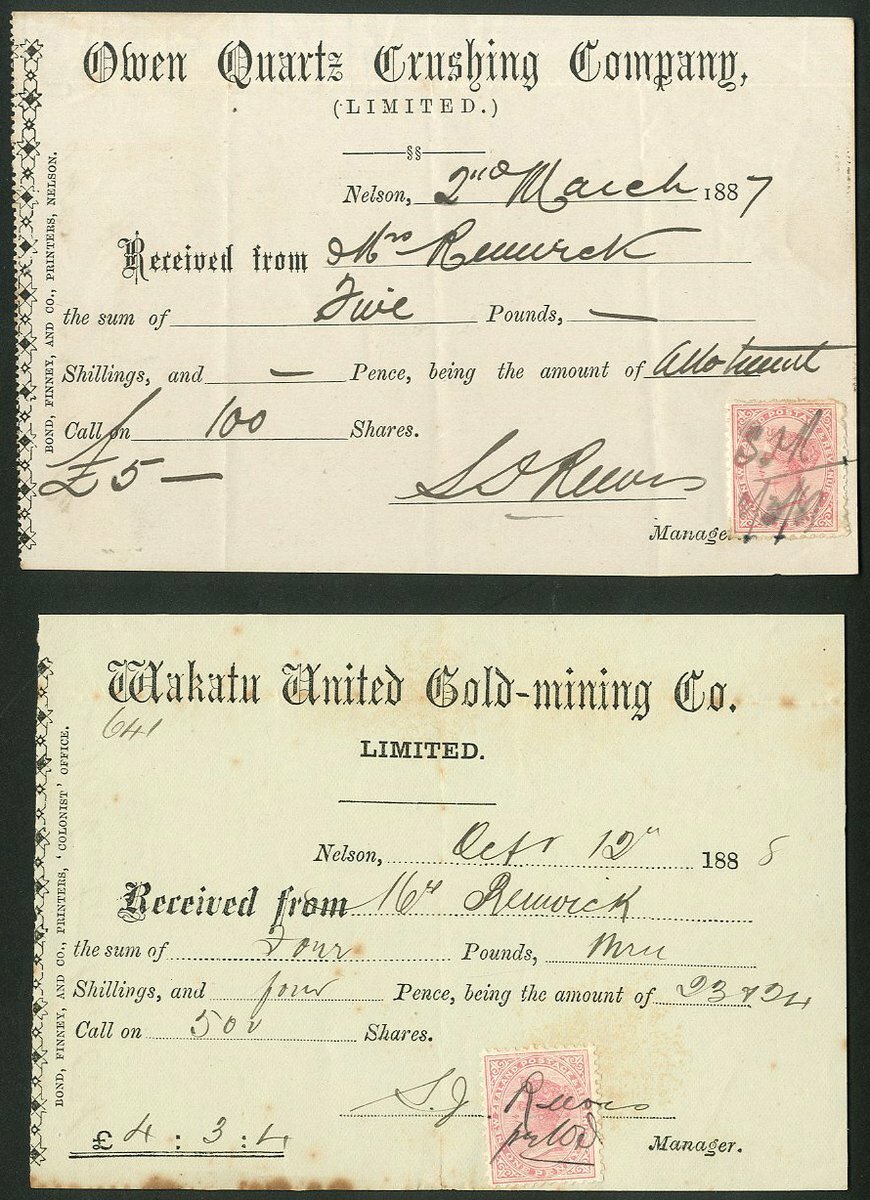 Owen Quartz Crushing Company,
(LIMITED.)
§§
Nelson, 2nd March 1887
Received from Mrs Renwick
the sum of Five Pounds, —
Shillings, and — Pence, being the amount of Allotment
Call on 100 Shares.
£5 —
S J Reeves
Manager.
BOND, FINNEY, AND CO., PRINTERS, NELSON.
Wakatu United Gold-mining Co.
641
LIMITED.
Nelson, Octr 12 1888
Received from Mrs Renwick
the sum of Four Pounds,
Shillings, and four Pence, being the amount of 23 & 24
Call on 500 Shares.
S. J. Reeves
£ 4 : 3 : 4
Manager.
BOND, FINNEY, AND CO., PRINTERS, 'COLONIST' OFFICE.